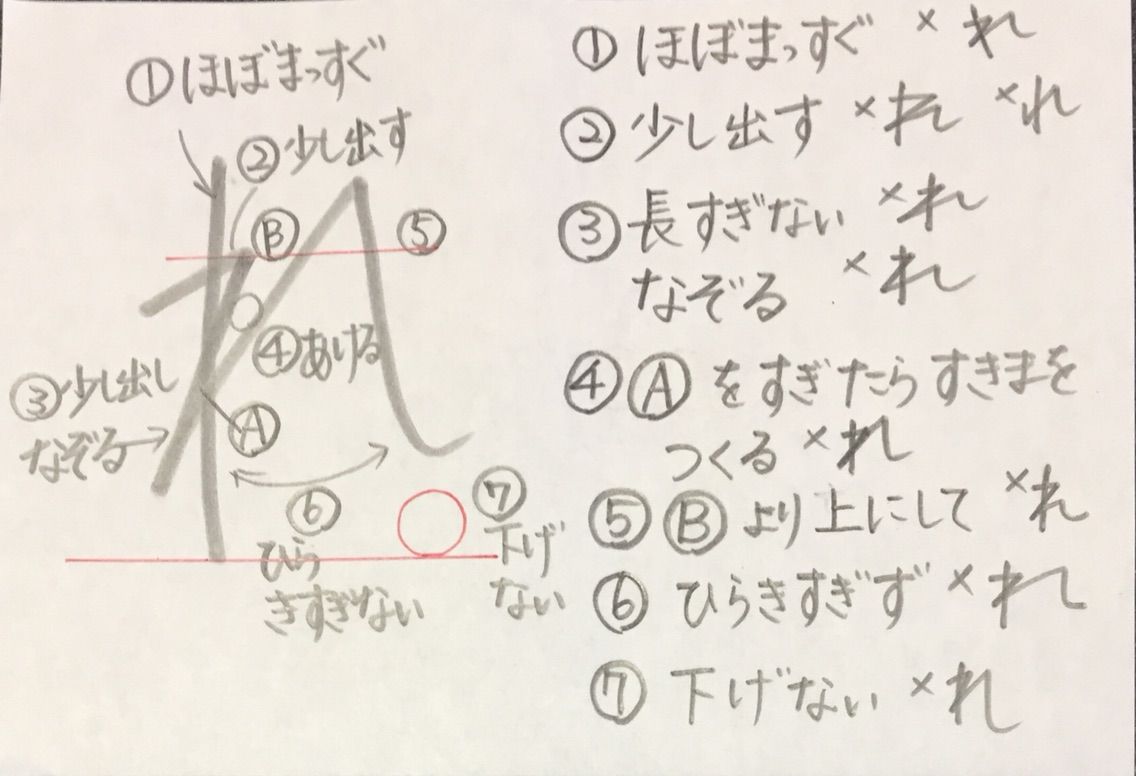 ①ほぼまっすぐ
②少し出す
Ⓑ
⑤
④あける
③少し出し
なぞる
Ⓐ
⑥
ひら
きすぎない
⑦
下げ
ない
①ほぼまっすぐ ×れ
②少し出す ×れ ×れ
③長すぎない ×れ
なぞる ×れ
④Ⓐをすぎたらすきまを
つくる ×れ
⑤Ⓑより上にして ×れ
⑥ひらきすぎず ×れ
⑦下げない ×れ
れ